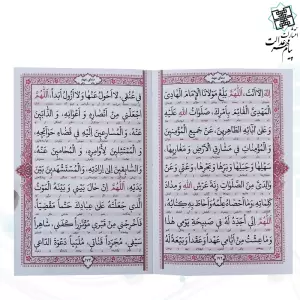 اِلّا اَنْتَ، اَللّهُمَّ بَلِّغْ مَوْلانَا الْاِمامَ الْهادِيَ
الْمَهْدِيَّ الْقائِمَ بِاَمْرِكَ، صَلَواتُ اللهِ عَلَيْهِ
وَ عَلى آبائِهِ الطّاهِرينَ، عَنْ جَميعِ الْمُؤْمِنينَ
وَ الْمُؤْمِناتِ فى مَشارِقِ الْاَرْضِ وَ مَغارِبِها،
سَهْلِها وَ جَبَلِها وَ بَرِّها وَ بَحْرِها، وَ عَنّى وَ عَنْ
والِدَيَّ مِنَ الصَّلَواتِ زِنَةَ عَرْشِ اللهِ وَ مِدادَ
كَلِماتِهِ، وَ ما اَحْصاهُ عِلْمُهُ وَ اَحاطَ بِهِ كِتابُهُ،
اَللّهُمَّ اِنّى اُجَدِّدُ لَهُ فى صَبيحَةِ يَوْمى هذا
وَ ما عِشْتُ مِنْ اَيّامى عَهْداً وَ عَقْداً وَ بَيْعَةً لَهُ
فى عُنُقى، لا اَحُولُ عَنْها وَ لا اَزُولُ اَبَداً، اَللّهُمَّ
اجْعَلْنى مِنْ اَنْصارِهِ وَ اَعْوانِهِ، وَ الذّابّينَ
عَنْهُ، وَ الْمُسارِعينَ اِلَيْهِ فى قَضاءِ حَوائِجِهِ،
وَ الْمُمْتَثِلينَ لِاَوامِرِهِ، وَ الْمُحامينَ عَنْهُ،
وَ السّابِقينَ اِلى اِرادَتِهِ، وَ الْمُسْتَشْهَدينَ بَيْنَ
يَدَيْهِ، اَللّهُمَّ اِنْ حالَ بَيْنى وَ بَيْنَهُ الْمَوْتُ
الَّذى جَعَلْتَهُ عَلى عِبادِكَ حَتْماً مَقْضِيّاً،
فَاَخْرِجْنى مِنْ قَبْرى مُؤْتَزِراً كَفَنى، شاهِراً
سَيْفى، مُجَرِّداً قَناتى، مُلَبِّياً دَعْوَةَ الدّاعى